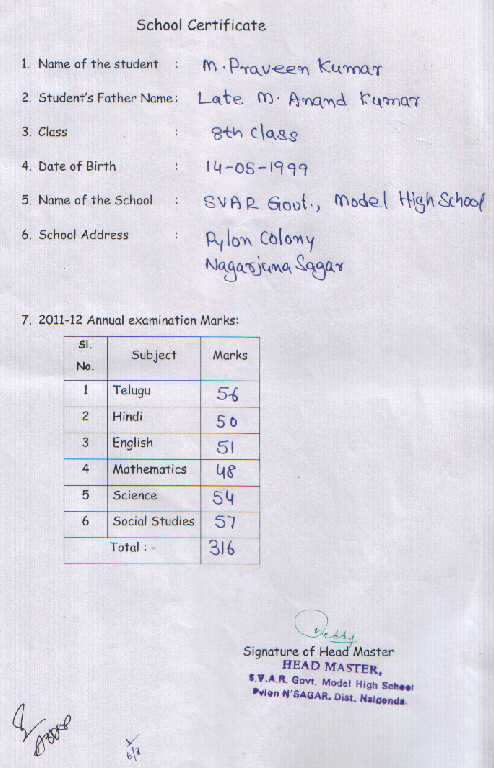 School Certificate
1. Name of the student : M. Praveen Kumar
2. Student's Father Name: Late M. Anand Kumar
3. Class : 8th Class
4. Date of Birth : 14-05-1999
5. Name of the School : SVAR Govt., Model High School
6. School Address : Pylon Colony
Nagarjuna Sagar
7. 2011-12 Annual examination Marks:
Sl. No. Subject Marks
1 Telugu 56
2 Hindi 50
3 English 51
4 Mathematics 48
5 Science 54
6 Social Studies 57
Total : - 316
Signature of Head Master
HEAD MASTER,
S.V.A.R. Govt. Model High School
Pylon N'SAGAR. Dist. Nalgonda.